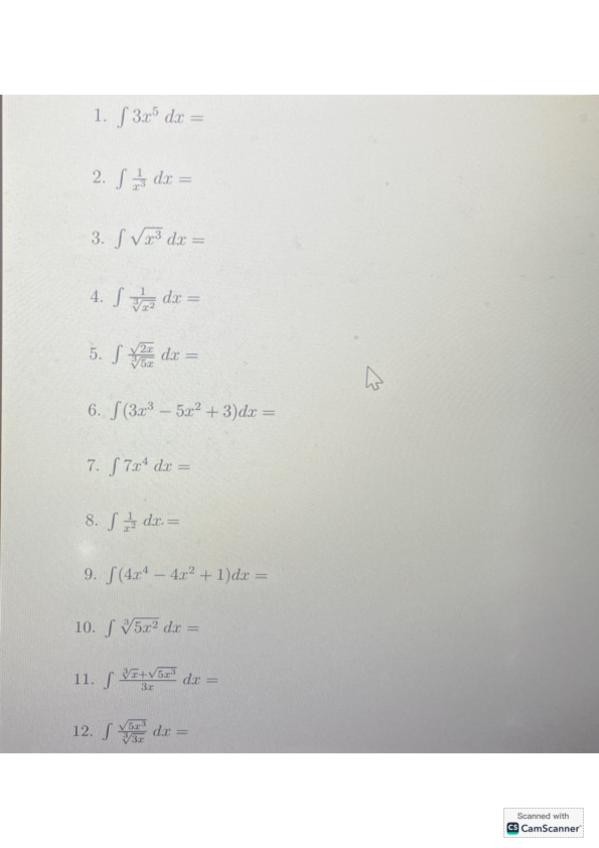 1. ∫ 3x⁵ dx =
2. ∫ 1/x³ dx =
3. ∫ √x³ dx =
4. ∫ 1/∛x² dx =
5. ∫ √2x/∛5x dx =
6. ∫(3x³ − 5x² + 3)dx =
7. ∫ 7x⁴ dx =
8. ∫ 1/x² dx =
9. ∫(4x⁴ − 4x² + 1)dx =
10. ∫ ∛5x² dx =
11. ∫ (∛x+√5x³)/3x dx =
12. ∫ √5x³/∛3x dx =
Scanned with
CS CamScanner